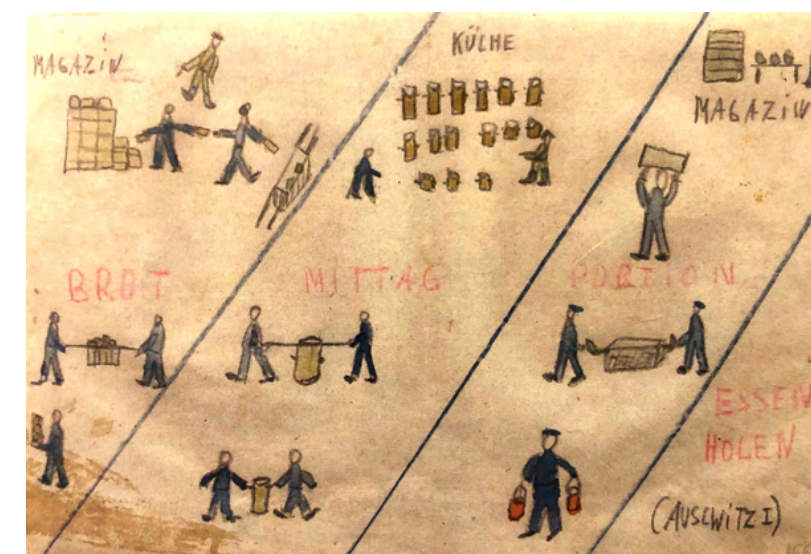 MAGAZIN
KÜCHE
MAGAZIN
BROT
MITTAG
PORTION
ESSEN
HOLEN
(AUSCWITZ I)